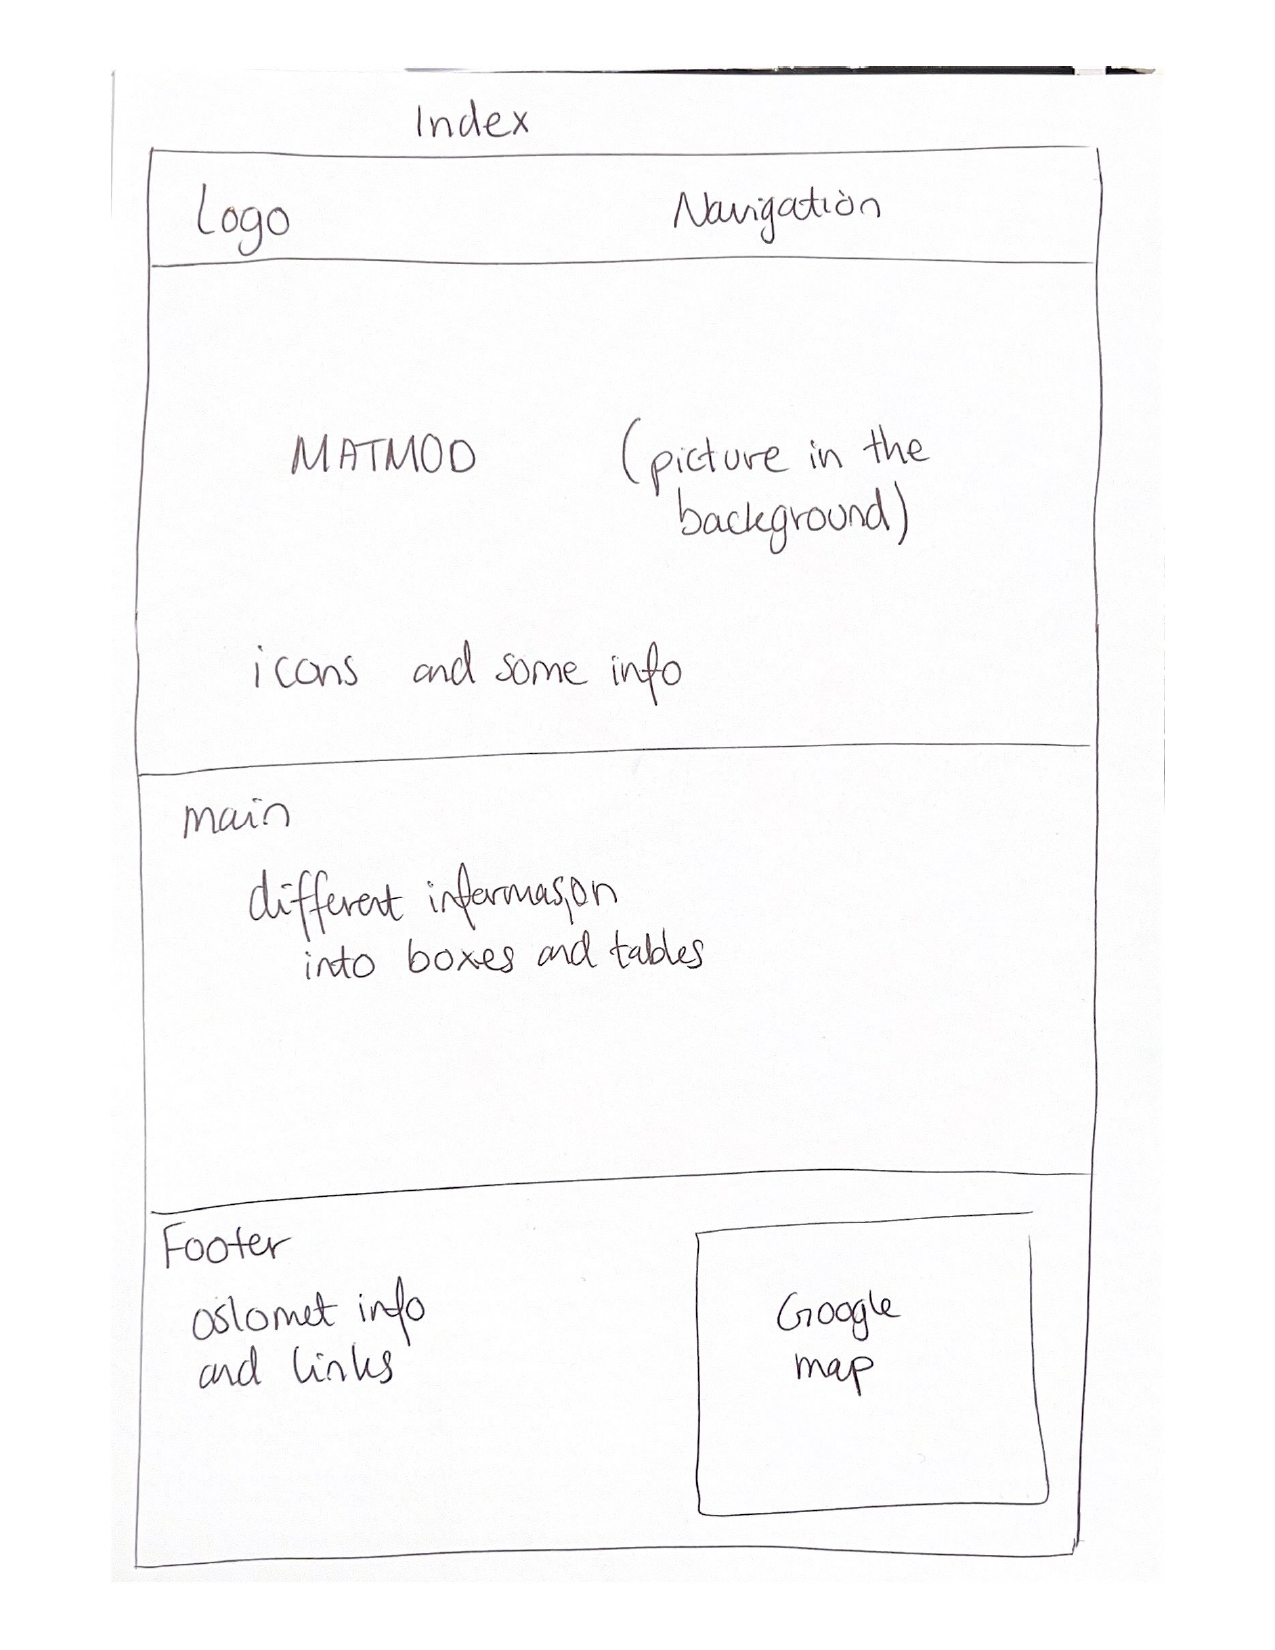 Index
Logo
Navigation
MATMOD
(picture in the
background)
icons and some info
main
different informasjon
into boxes and tables
Footer
oslomet info
and links
Google
map